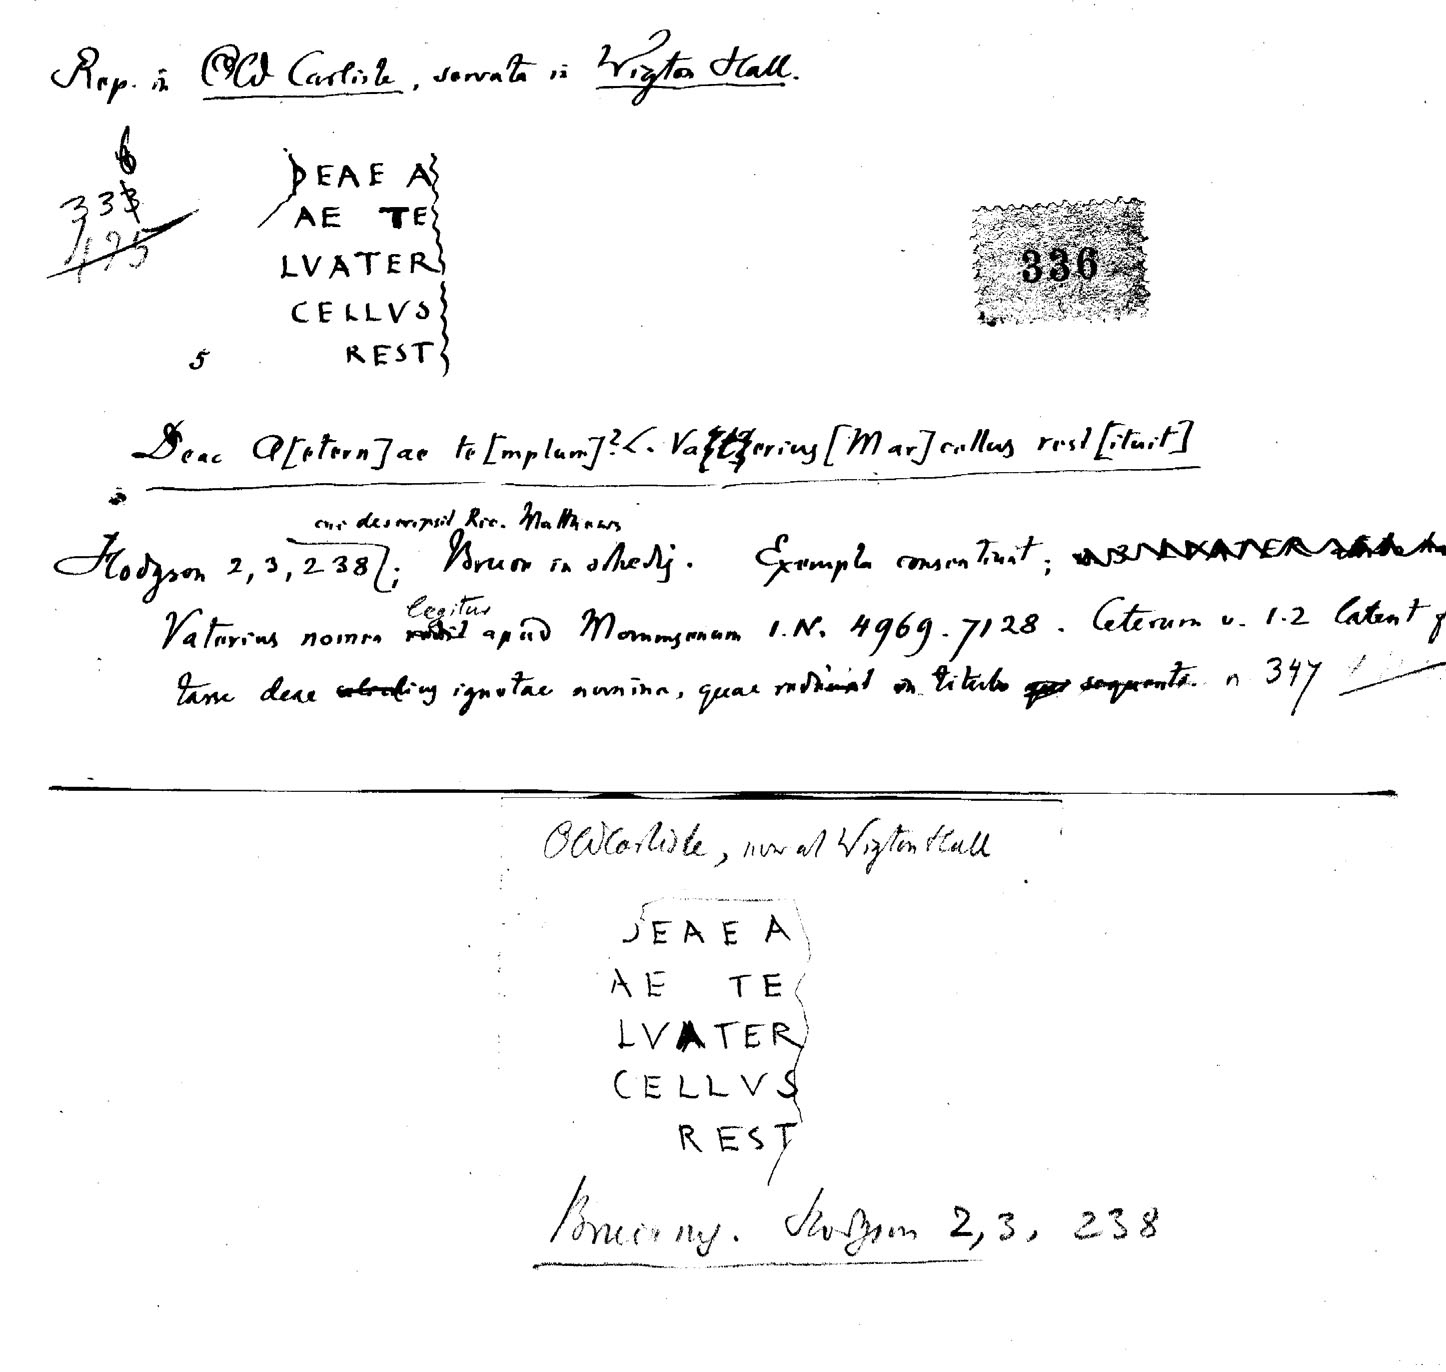 Rep. in Old Carlisle, servata in Wigton Hall.
6
333
495
DEAE A
AE TE
LVATER
CELLVS
5 REST
336
Deae A[etern]ae te[mplum]? L. Va[t]erius [Mar]cellus rest[ituit]
cui descripsit Ric. Matthews
Hodgson 2, 3, 238; Bruce in schedis. Exempla consentiunt;
legitur
Vaterius nomen apud Mommsenum I.N. 4969. 7128. Ceterum v. 1.2 latent f
tasse deae ignotae nomina, quae redeunt in titulo n 347
Old Carlisle, now at Wigton Hall
DEAE A
AE TE
LVATER
CELLVS
REST
Bruce ms. Hodgson 2, 3, 238